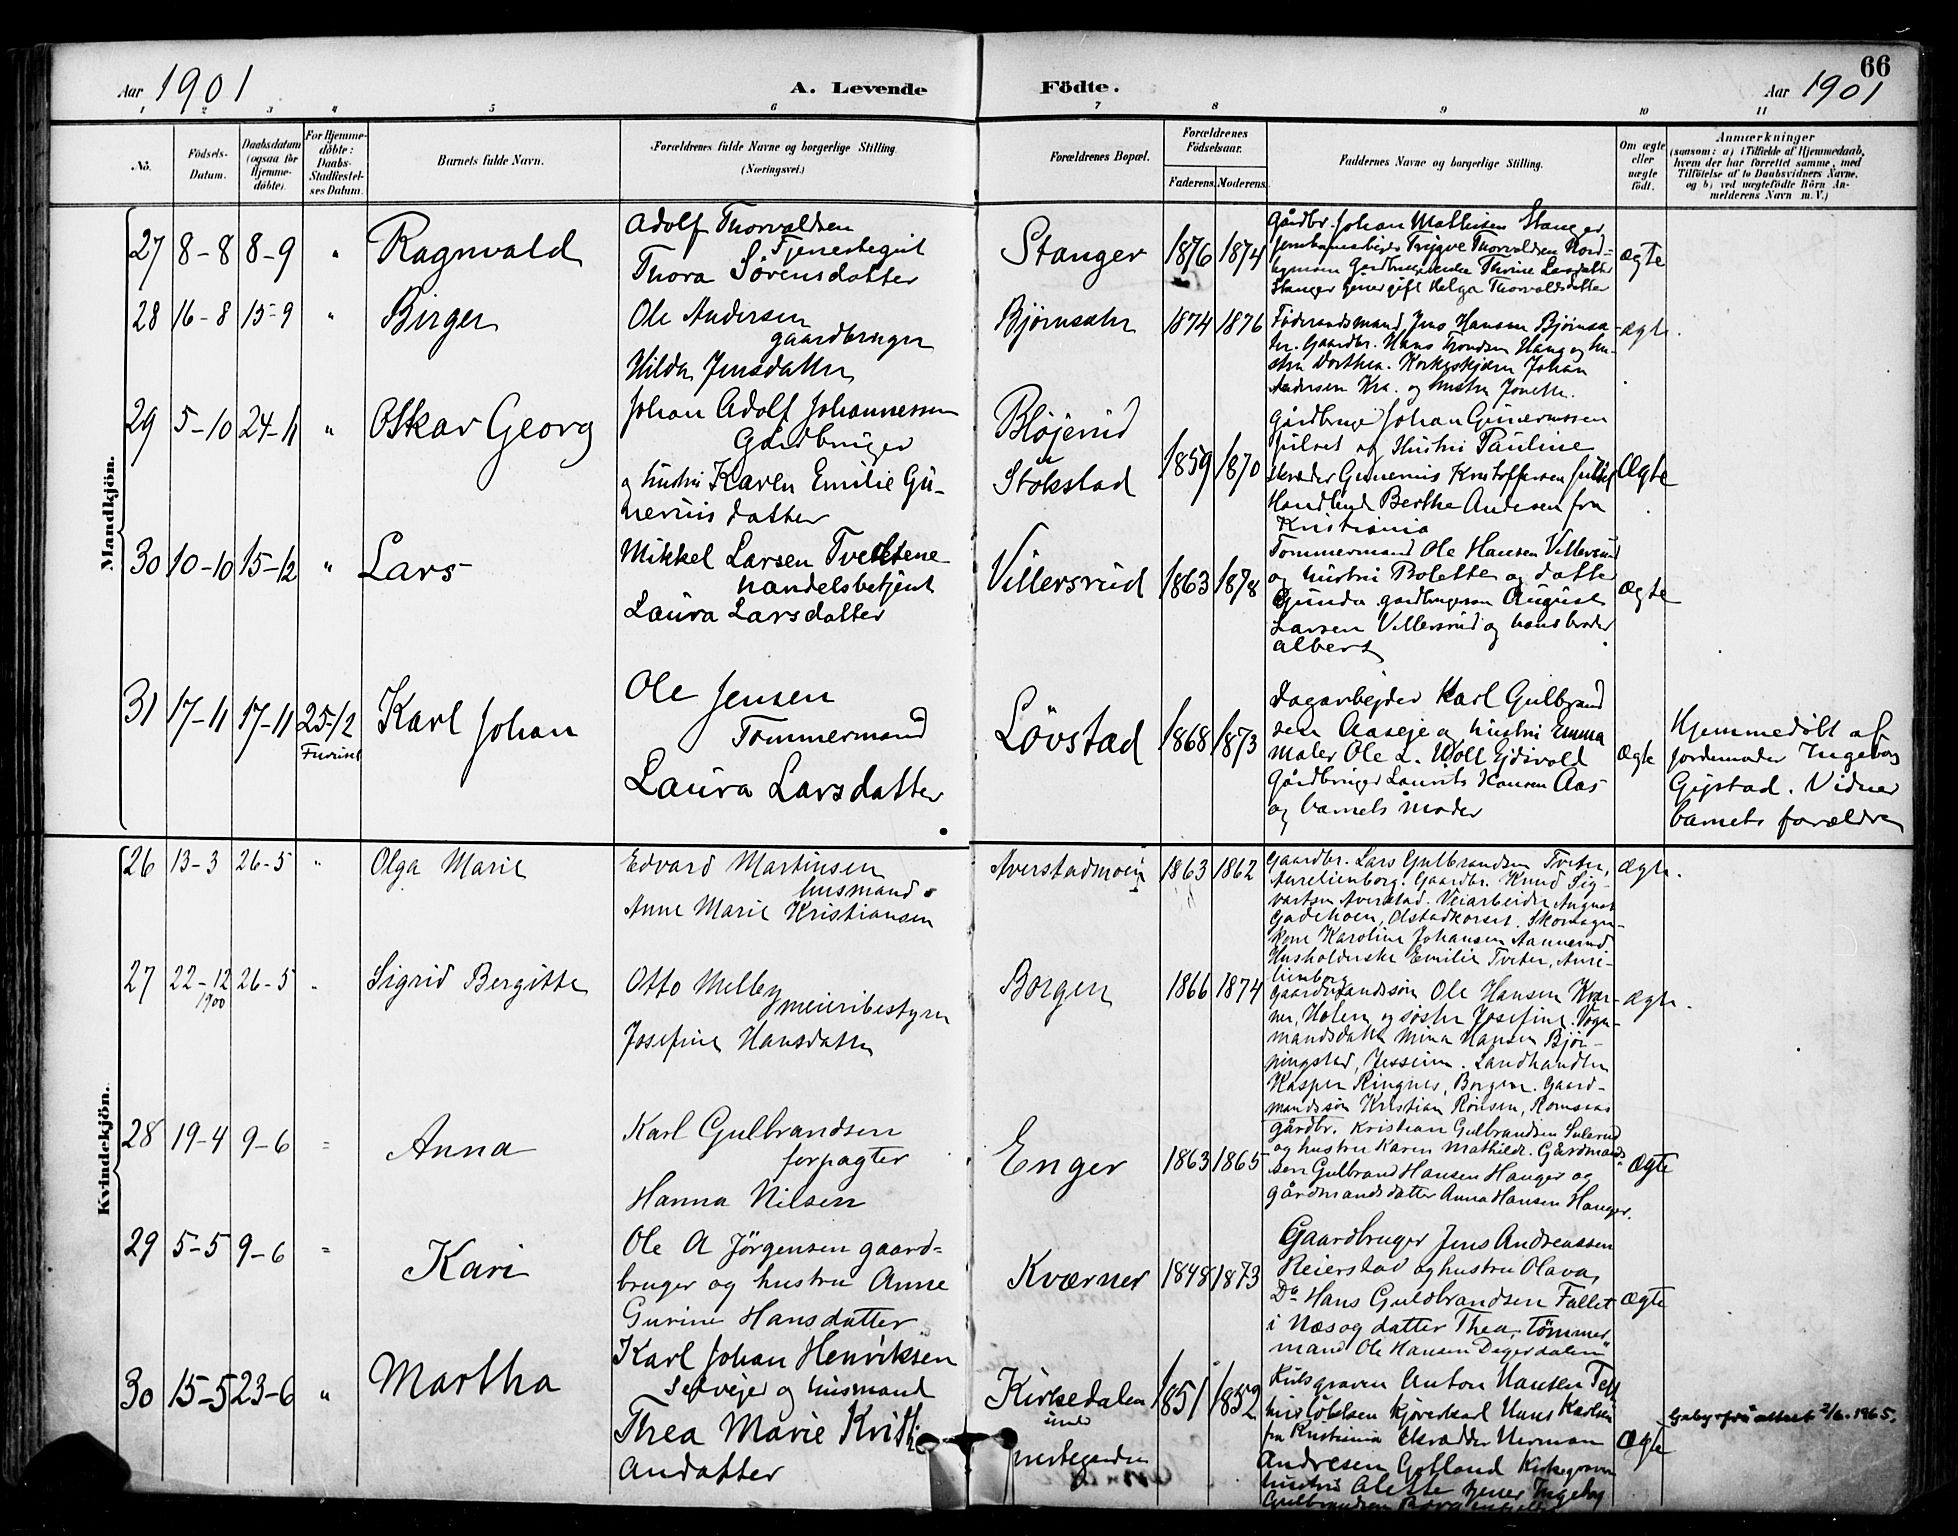 Aar 1901
A. Levende Födte.
Aar 1901
66
1 2 3 4 5 6 7 8 9 10 11
No.
Födsels-Datum.
Daabsdatum (ogsaa for Hjemme-döbte).
For Hjemme-döbte: Daabs-Stadfæstel-ses Datum.
Barnets fulde Navn.
Forældrenes fulde Navne og borgerlige Stilling (Næringsvei.)
Forældrenes Bopæl.
Forældrenes Födselsaar.
Faderens. Moderens.
Faddernes Navne og borgerlige Stilling.
Om ægte eller uægte födt.
Anmærkninger
(saasom: a) i Tilfælde af Hjemmedaab, hvem der har forrettet samme, med Tilföielse af to Daabsvidners Navne, og b) ved uægtefödte Börn An-melderens Navn m. V.)
Mandkjön.
27 8-8 8-9 " Ragnvald
Adolf Thorvaldsen
Tjenestegut
Thora Sørensdatter
Stanger 1876 1874
Gårdbr. Johan Mathisen Stanger,
Trygve Thorvaldsen Nord-
Thrine Larsdatter
Stanger pener gift Helga Thorvaldsdatter
ægte
28 16-8 15-9 " Birger
Ole Andersen
gaardbruger
Hilda Jensdatter
Bjørnsætr 1874 1876
Føderaadsmand Jens Hansen Bjørnsæ-
tr. Gaardbr. Hans Trondsen Haug og hu-
stru Dorthea. Johan
Andersen Kra. og hustru Jonette.
ægte.
29 5-10 24-11 " Oskar Georg
Johan Adolf Johannessen
Gårdbruger
og hustru Karen Emilie Gu-
neriusdatter
Bløjerud
Stokstad
1859 1870
Gårdbruger Johan Guneriussen
Julset og Hustru Pauline
Skræder Gunerius Kristoffersen Julset
Berthe Andersen fra
Kristiania
Ægte
30 10-10 15-12 " Lars
Mikkel Larsen Tveitene
handelsbetjent
Laura Larsdatter
Villersrud 1863 1878
Tømmermand Ole Hansen Villersrud
og hustru Bolette og datter
Gunda gardbrugersøn August
Larsen Villersrud og hans broder
Albert
ægte
31 17-11 17-11 25-12
Furuset
Karl Johan
Ole Jensen
Tømmermand
Laura Larsdatter
Løvstad 1868 1873
Dagarbejder Karl Gulbrand
sen Aaseje og hustru Emma
Maler Ole L. Woll Ejdsvold
Gårdbruger Laurits Hansen Aas
og barnets moder
Ægte
Hjemmedøbt af
jordemoder Ingeborg
Gjestad. Vidner
barnets forældre
Kvindekjön.
26 13-3 26-5 " Olga Marie
Edvard Martinsen
husmand
Anne Marie Kristiansen
Averstadmoen 1863 1862
Gaardbr. Lars Gulbrandsen Tveter,
Aurelienborg. Gaardbr. Knud Sig-
vartsen Averstad. Veiarbeider August
Skomager-
kone Karoline Johansen
Husholderske Emilie Tveter, Aure-
lienborg
ægte.
27 22-12 26-5
1900
Sigrid Bergitte
Otto Melby
meieribestyrer
Josefine Hansdatter
Borgen 1866 1874
Gaardmandssøn Ole Hansen Kvær-
ner, Holen og søster Josefine.
mandsdatter Mina Hansen Bjør-
ningstad, Jessheim. Landhandler
Kasper Ringnes, Borgen. Gaard-
mandssøn Kristian Rønsen, Romsaas
ægte.
28 19-4 9-6 " Anna
Karl Gulbrandsen
forpagter
Hanna Nilsen
Enger 1863 1865
Gårdbr. Kristian Gulbrandsen Sulerud
og hustru Karen Mathilde. Gårdmands
søn Gulbrand Hansen Hanger og
gårdmandsdatter Anna Hansen Hanger.
Ægte
29 5-5 9-6 " Kari
Ole A Jörgensen gaard-
bruger og hustru Anne
Gurine Hansdatter
Kværner 1848 1873
Gaardbruger Jens Andreassen
Reierstad og hustru Olava,
Do Hans Guldbrandsen Fallet
i Næs og datter Thea, Tömmer
mand Ole Hansen Degerdalen
Ægte
30 15-5 23-6 " Martha
Karl Johan Henriksen
selvejer og husmand
Thea Marie Kristi-
andatter
Kirkedalen
under
Prestegarden
1851 1852
Anton Hansen
Hans Karlsen
fra Kristiania Skrædder Herman
Andresen Gotland Kirkegraver
hustru Alette pener Ingeborg
Gulbrandsen
Ægte
attest 2/6. 1965.